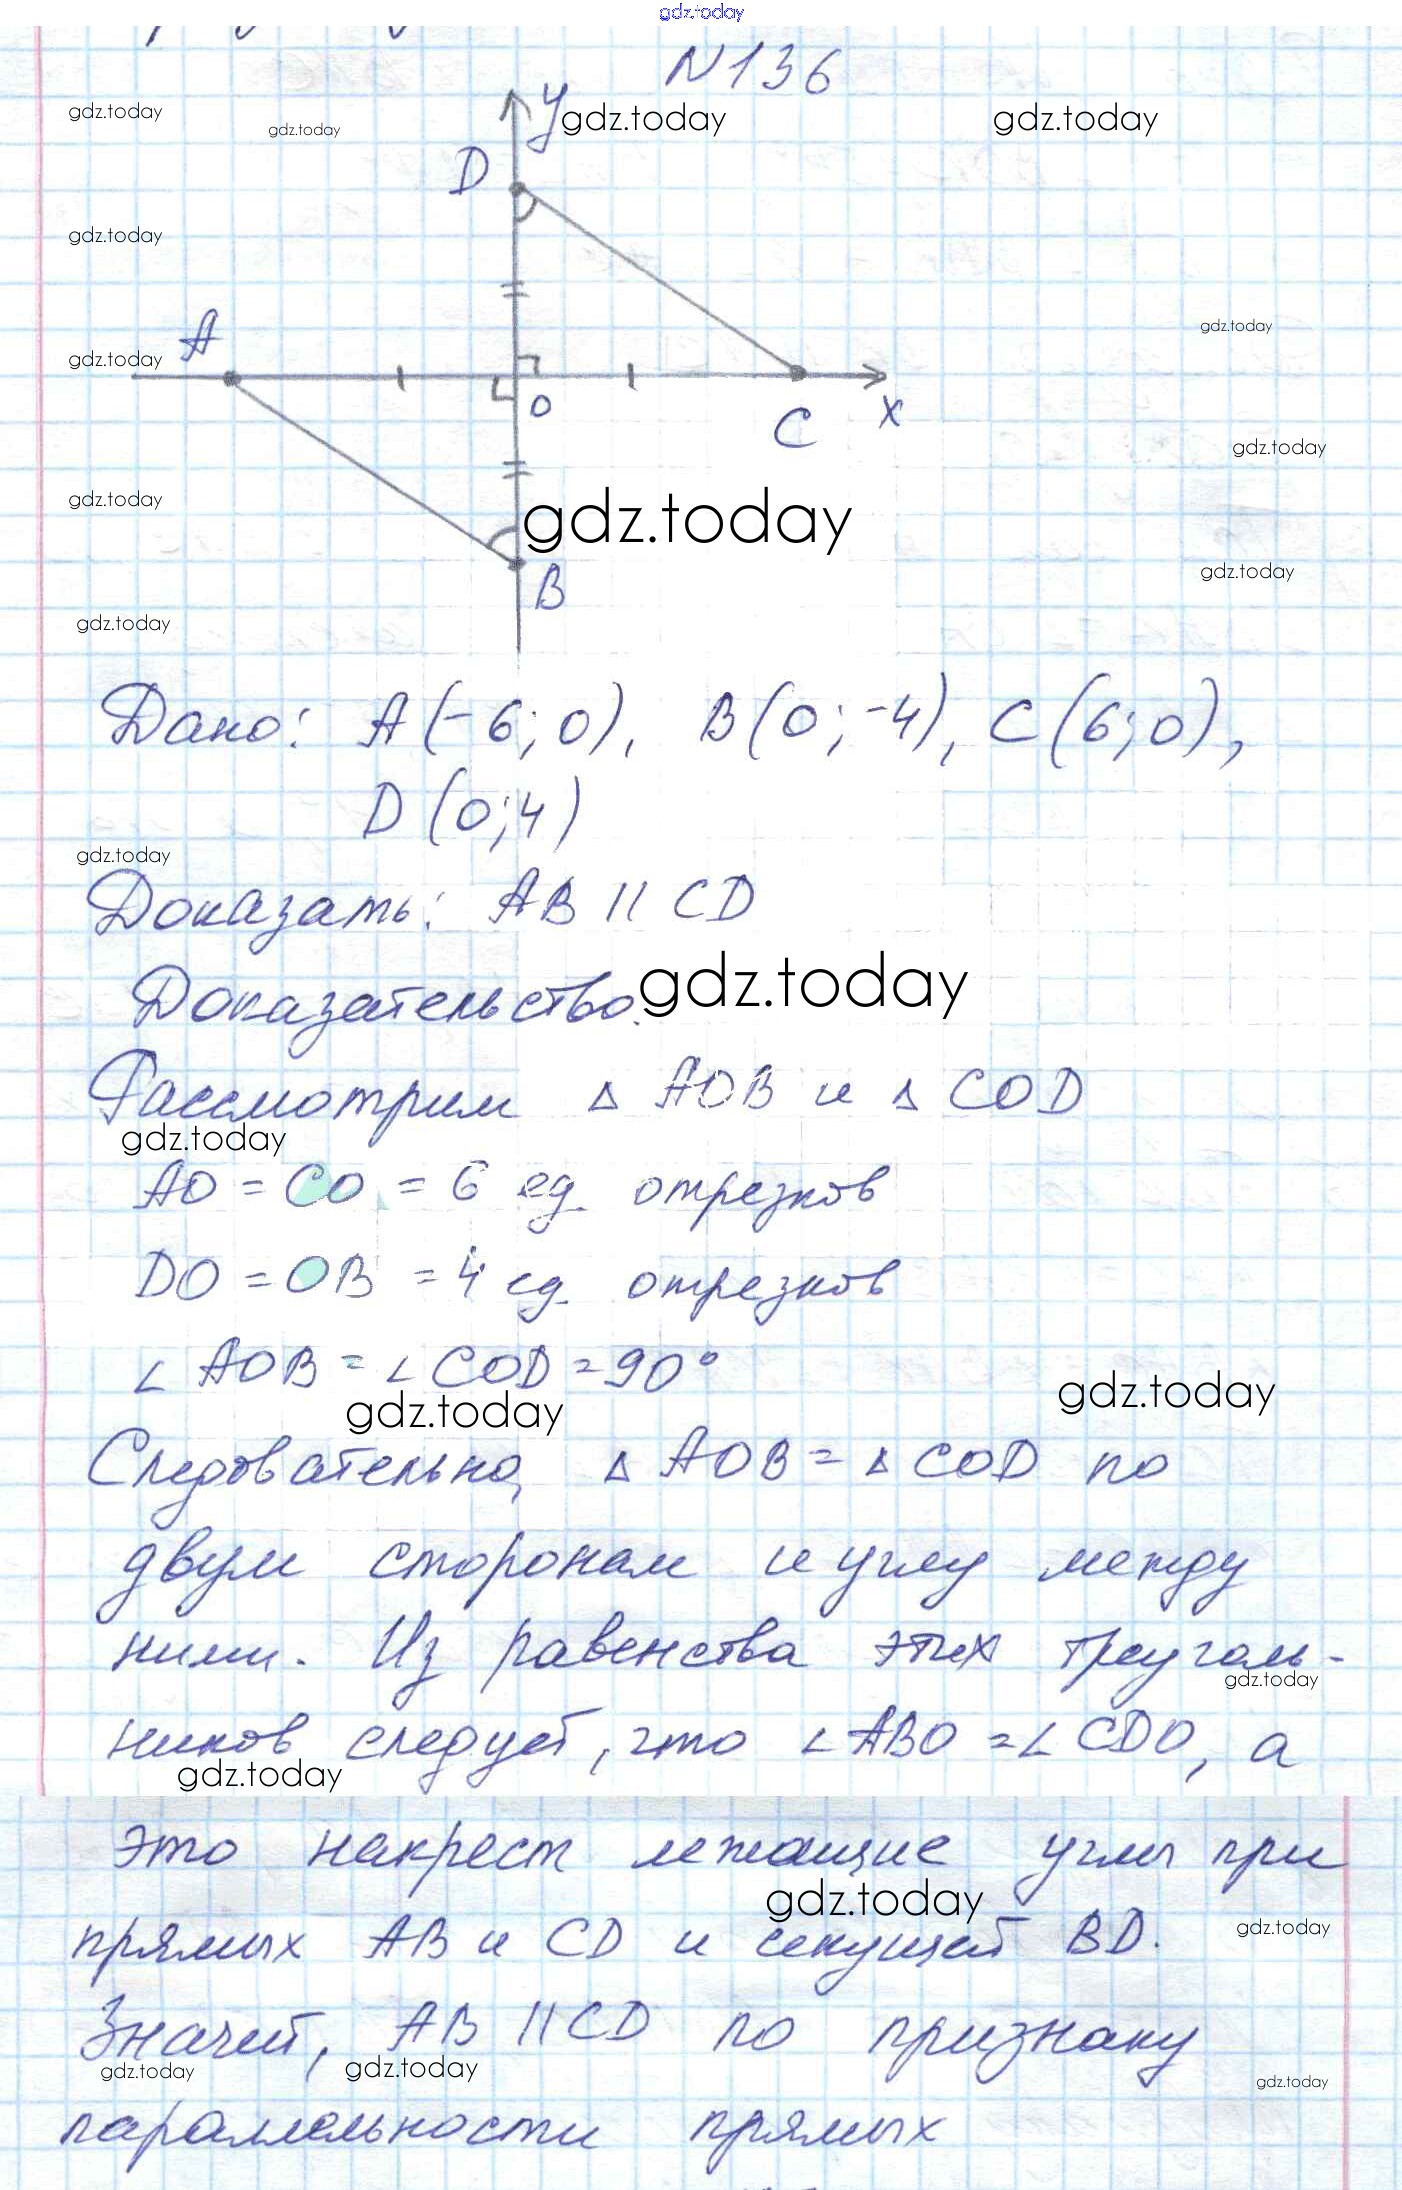 gdz.today
N136
y
gdz.today
gdz.today
gdz.today
gdz.today
D
gdz.today
A
gdz.today
gdz.today
O
C
x
gdz.today
gdz.today
gdz.today
B
gdz.today
gdz.today
Дано: A(-6;0), B(0;-4), C(6;0),
D(0;4)
gdz.today
Доказать: AB || CD
Доказательство.
gdz.today
Рассмотрим △ AOB и △ COD
gdz.today
AO = CO = 6 ед. отрезков
DO = OB = 4 ед. отрезков
∠ AOB = ∠ COD = 90°
gdz.today
gdz.today
Следовательно, △ AOB = △ COD по
двум сторонам и углу между
ними. Из равенства этих треуголь-
gdz.today
ников следует, что ∠ ABO = ∠ CDO, а
gdz.today
это накрест лежащие углы при
gdz.today
прямых AB и CD и секущей BD.
gdz.today
Значит, AB || CD по признаку
gdz.today
gdz.today
gdz.today
параллельности прямых